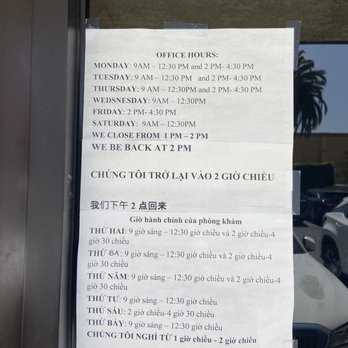 OFFICE HOURS:
MONDAY: 9AM – 12:30 PM and 2 PM- 4:30 PM
TUESDAY: 9 AM – 12:30 PM and 2 PM- 4:30 PM
THURSDAY: 9 AM – 12:30PM and 2 PM- 4:30 PM
WEDSNESDAY: 9AM – 12:30PM
FRIDAY: 2 PM- 4:30 PM
SATURDAY: 9AM – 12:30PM
WE CLOSE FROM 1 PM – 2 PM
WE BE BACK AT 2 PM
CHÚNG TÔI TRỞ LẠI VÀO 2 GIỜ CHIỀU
我们下午 2 点回来
Giờ hành chính của phòng khám
THỨ HAI: 9 giờ sáng – 12:30 giờ chiều và 2 giờ chiều-4
giờ 30 chiều
THỨ BA: 9 giờ sáng – 12:30 giờ chiều và 2 giờ chiều-4
giờ 30 chiều
THỨ NĂM: 9 giờ sáng – 12:30 giờ chiều và 2 giờ chiều-4
giờ 30 chiều
THỨ TƯ: 9 giờ sáng – 12:30 giờ chiều
THỨ SÁU: 2 giờ chiều-4 giờ 30 chiều
THỨ BẢY: 9 giờ sáng – 12:30 giờ chiều
CHÚNG TÔI NGHỈ TỪ 1 giờ chiều - 2 giờ chiều